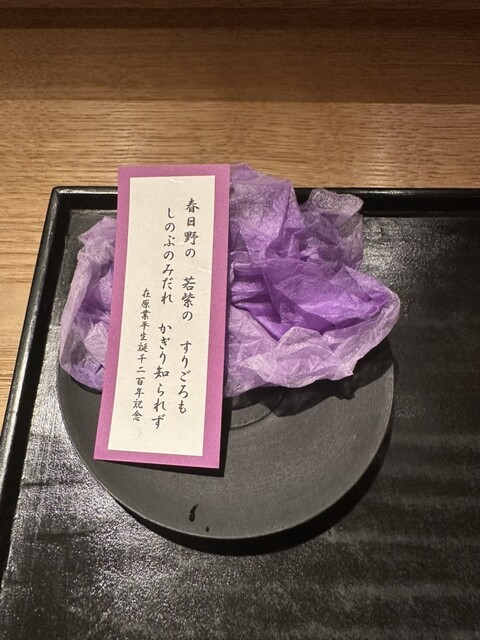 春日野の 若紫の すりごろも
しのぶのみだれ かぎり知られず
在原業平生誕千二百年記念